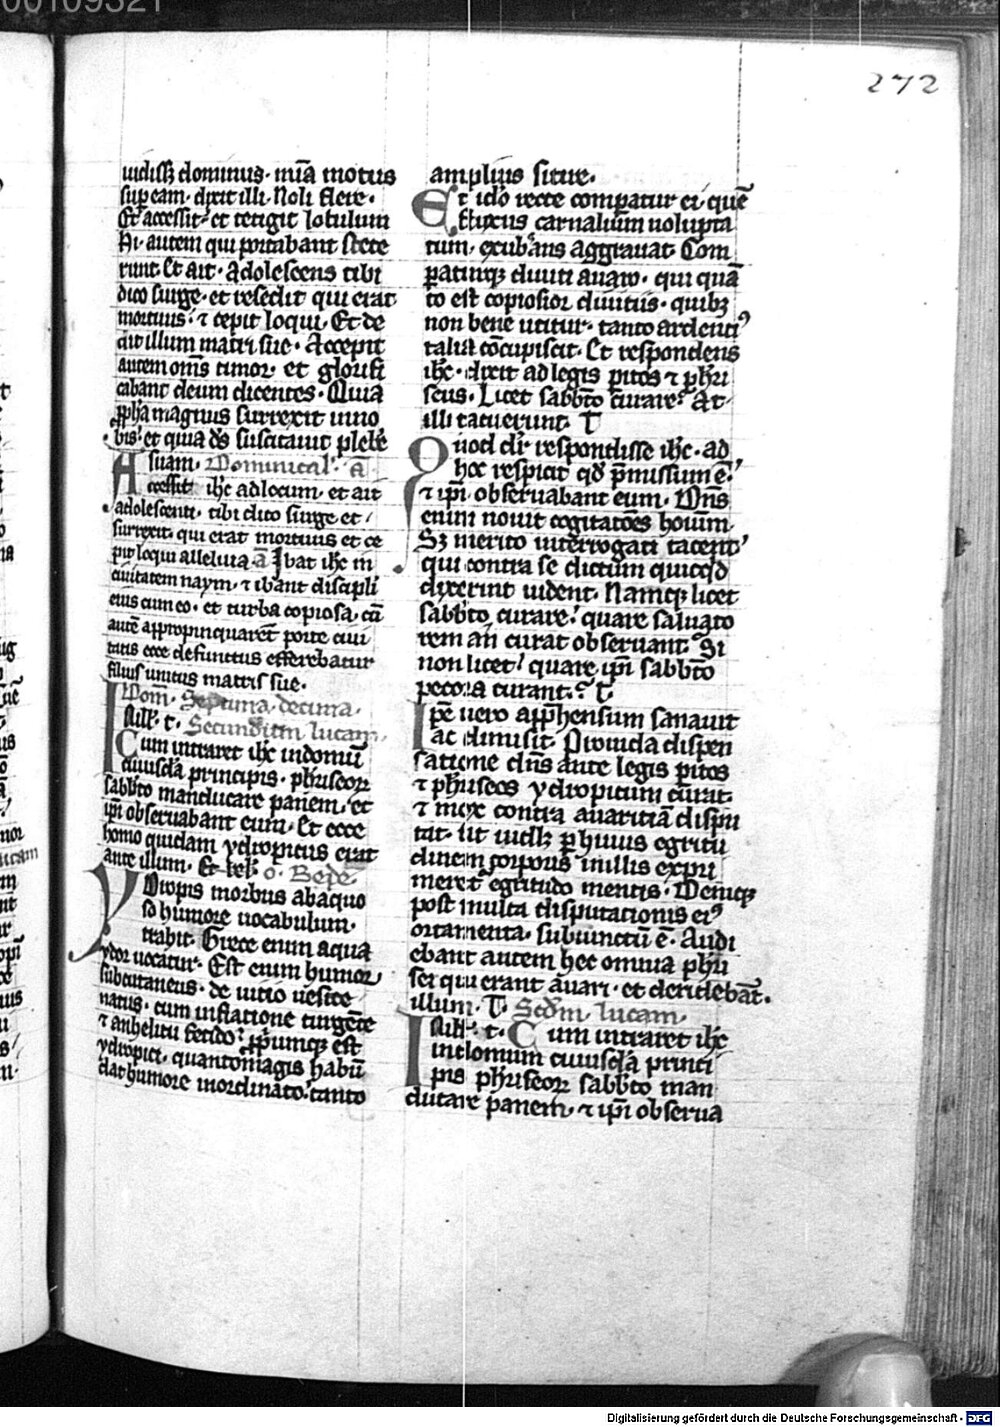 272
uidiss dominus. mia motus
sup eam. dixit illi. Noli flere.
Et accessit. et tetigit lotulum
Hi. autem qui portabant stete
runt. Et ait. Adolescens tibi
dico surge. et resedit qui erat
mortuus. ⁊ cepit loqui. Et de
dit illum matri sue. Accepit
autem oms timor. et glorifi
cabant deum dicentes. Quia
ppha magnus surrexit inno
bis. et quia ds suscitauit plebe
suam. Dominical. a
Accessit ihc ad locum. et ait
adolescenti. tibi dico surge et
surrexit. qui erat mortuus et ce
pit loqui alleluia. a Ibat ihc in
ciuitatem naym. ⁊ ibant discipli
eius cum eo. et turba copiosa. cu
aute appropinquaret porte ciui
tatis ecce defunctus efferebatur
filius unicus matris sue.
Dom. Septima. decima.
Jn ill. t. Secundum lucam.
Cum intraret ihc in domu
cuiusda principis. phariseor
sabbto manducare panem. et
ipi obseruabant eum. Et ecce
homo quidam ydropicus erat
ante illum. Et rel. o. Bede.
Ydropis morbus ab aquo
so humore uocabulum.
trahit. Grece enim aqua
ydor uocatur. Est enim humor
subcutaneus. de uitio uesice
natus. cum inflatione turgete
⁊ anhelitu fetido. ppiumq est
ydropici. quanto magis habu
dat humore inordinato. tanto
amplius sitire.
Et ido recte comparatur ei. que
fluxus carnalium uolupta
tum. exubans aggrauat. Com
patiuq diuiti auaro. qui qua
to est copiosior diuitiis. quibz
non bene utitur. tanto ardenti
talia cocupiscit. Et respondens
ihc. dixit ad legis pitos ⁊ phri
seus. Licet sabbto curare. At
illi tacuerunt. T
Quod dr respondisse ihc. ad
hoc respicit qd pmissum e.
⁊ ipi obseruabant eum. Dns
enim nouit cogitatoes hoium.
Sz merito interrogati tacent
qui contra se dictum quicqd
dixerint uident. Namq licet
sabbto curare. quare saluato
rem an curat obseruant. Si
non licet. quare ipi sabbto
pecora curant. t.
Ipe uero apphensum sanauit
ac dimisit. Prouida dispen
satione dns ante legis pitos
⁊ phriseos ydropicum curat.
⁊ mox contra auaritia dispu
tat. ut uidlz p huius egritu
dinem corporis in illis expri
meret egritudo mentis. Deniq
post multa disputationis ei
ortamenta. subiunctu e. Audi
ebant autem hec omnia phri
sei qui erant auari. et deridebat.
illum. T. Scdm. lucam.
Jn ill. t. Cum intraret ihc
in domum cuiusda princi
pis phriseor sabbto man
ducare panem. ⁊ ipi obserua
Digitalisierung gefördert durch die Deutsche Forschungsgemeinschaft - DFG